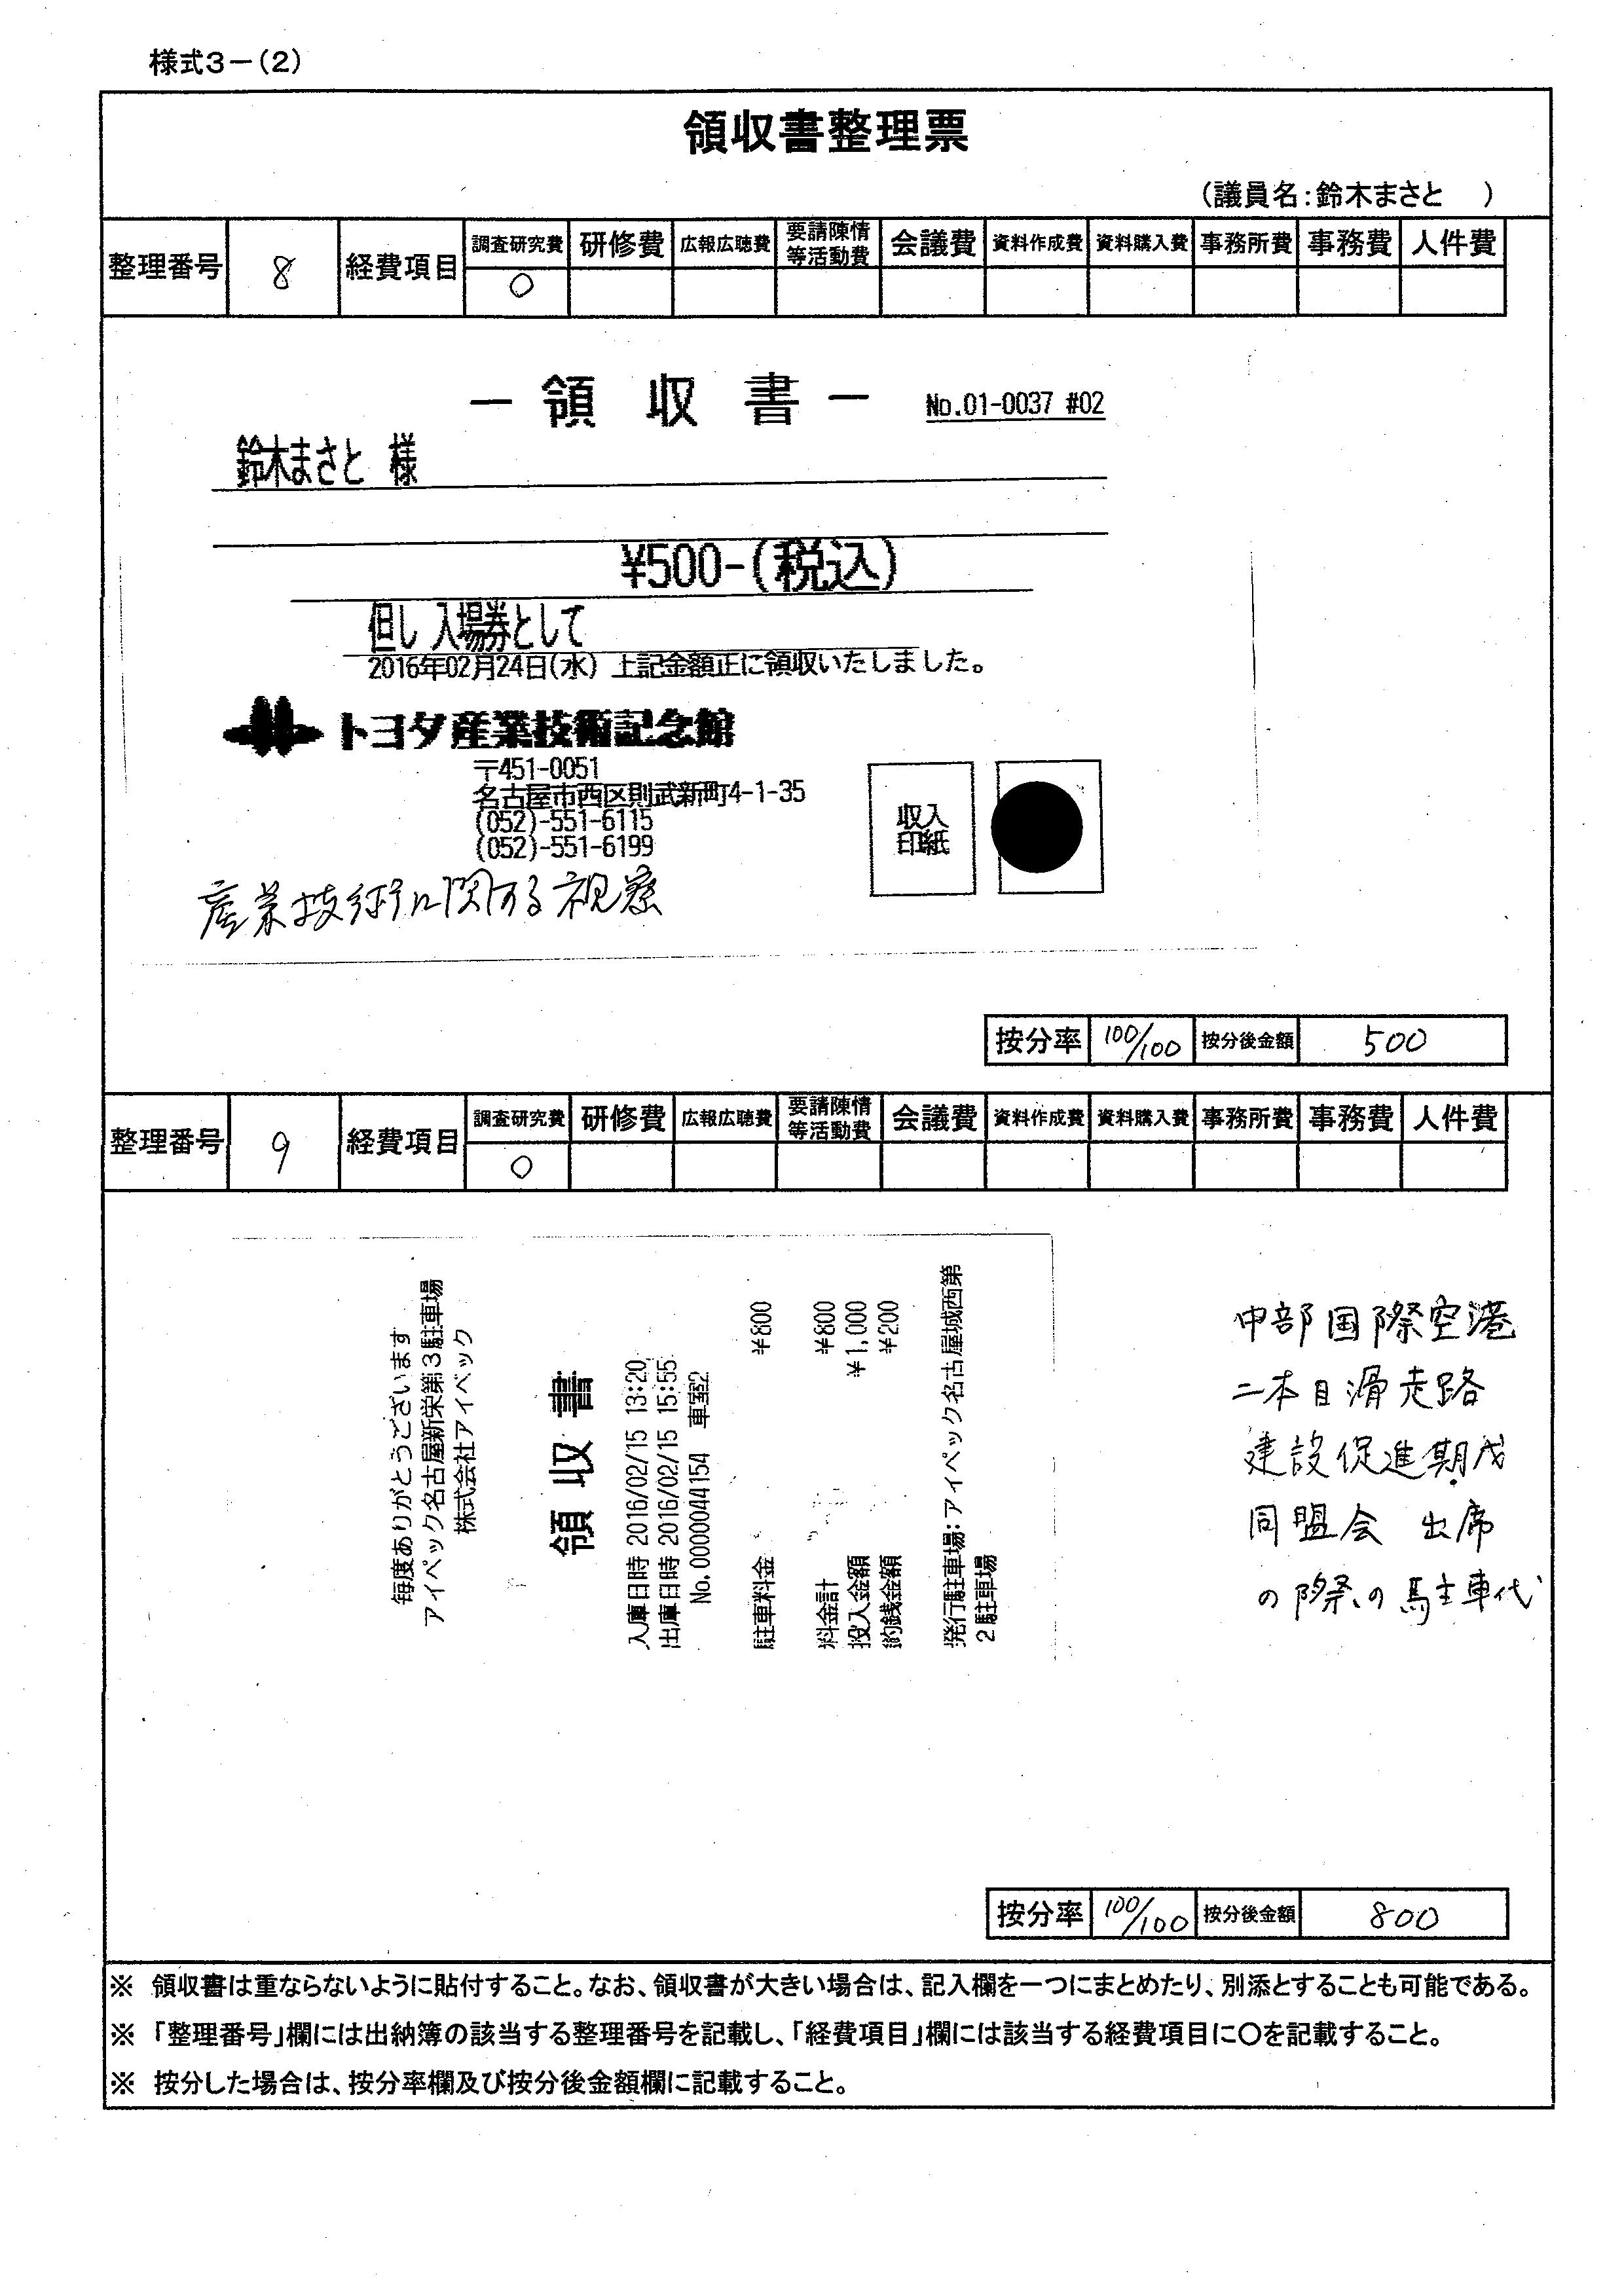 様式3－(2)
領収書整理票
(議員名:鈴木まさと　)
整理番号 8 経費項目 調査研究費 研修費 広報広聴費 要請陳情等活動費 会議費 資料作成費 資料購入費 事務所費 事務費 人件費
○
－ 領 収 書 － No.01-0037 #02
鈴木まさと 様
¥500-(税込)
但し 入場券として
2016年02月24日(水) 上記金額正に領収いたしました。
トヨタ産業技術記念館
〒451-0051
名古屋市西区則武新町4-1-35
(052)-551-6115
(052)-551-6199
収入
印紙
産業技術に関する視察
按分率 100/100 按分後金額 500
整理番号 9 経費項目 調査研究費 研修費 広報広聴費 要請陳情等活動費 会議費 資料作成費 資料購入費 事務所費 事務費 人件費
○
毎度ありがとうございます
アイペック名古屋新栄第3駐車場
株式会社アイペック
領 収 書
入庫日時 2016/02/15 13:20
出庫日時 2016/02/15 15:55
No.0000044154 車室2
駐車料金 ¥800
料金計 ¥800
投入金額 ¥1,000
釣銭金額 ¥200
発行駐車場:アイペック名古屋城西第
2駐車場
中部国際空港
二本目滑走路
建設促進期成
同盟会 出席
の際の駐車代
按分率 100/100 按分後金額 800
※ 領収書は重ならないように貼付すること。なお、領収書が大きい場合は、記入欄を一つにまとめたり、別添とすることも可能である。
※ 「整理番号」欄には出納簿の該当する整理番号を記載し、「経費項目」欄には該当する経費項目に○を記載すること。
※ 按分した場合は、按分率欄及び按分後金額欄に記載すること。